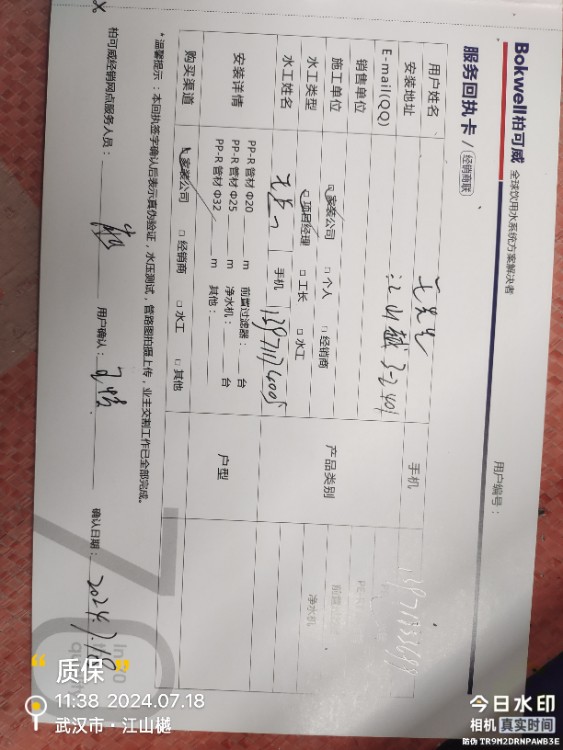 Bokwell 柏可威 全球饮用水系统方案解决者
服务回执卡 / 经销商联
用户编号：
用户姓名
手机
安装地址 江山樾 3-2-401
E-mail(QQ)
销售单位
产品类别
施工单位 □家装公司 □个人 □经销商
净水机
水工类型 □项目经理 □工长 □水工
水工姓名 手机
安装详情 PP-R 管材 Φ20 m 前置过滤器： 台
PP-R 管材 Φ25 m 净水机： 台
PP-R 管材 Φ32 m 其他：
户型
购买渠道 □家装公司 □经销商 □水工 □其他
*温馨提示：本回执签字确认后表示真伪验证，水压测试，管路图拍摄上传，业主交割工作已全部完成。
柏可威经销网点服务人员： 用户确认： 确认日期： 2024.7.18
质保
11:38 2024.07.18
武汉市·江山樾
今日水印
相机 真实时间
防伪 TR9M2DRNPAWB3E